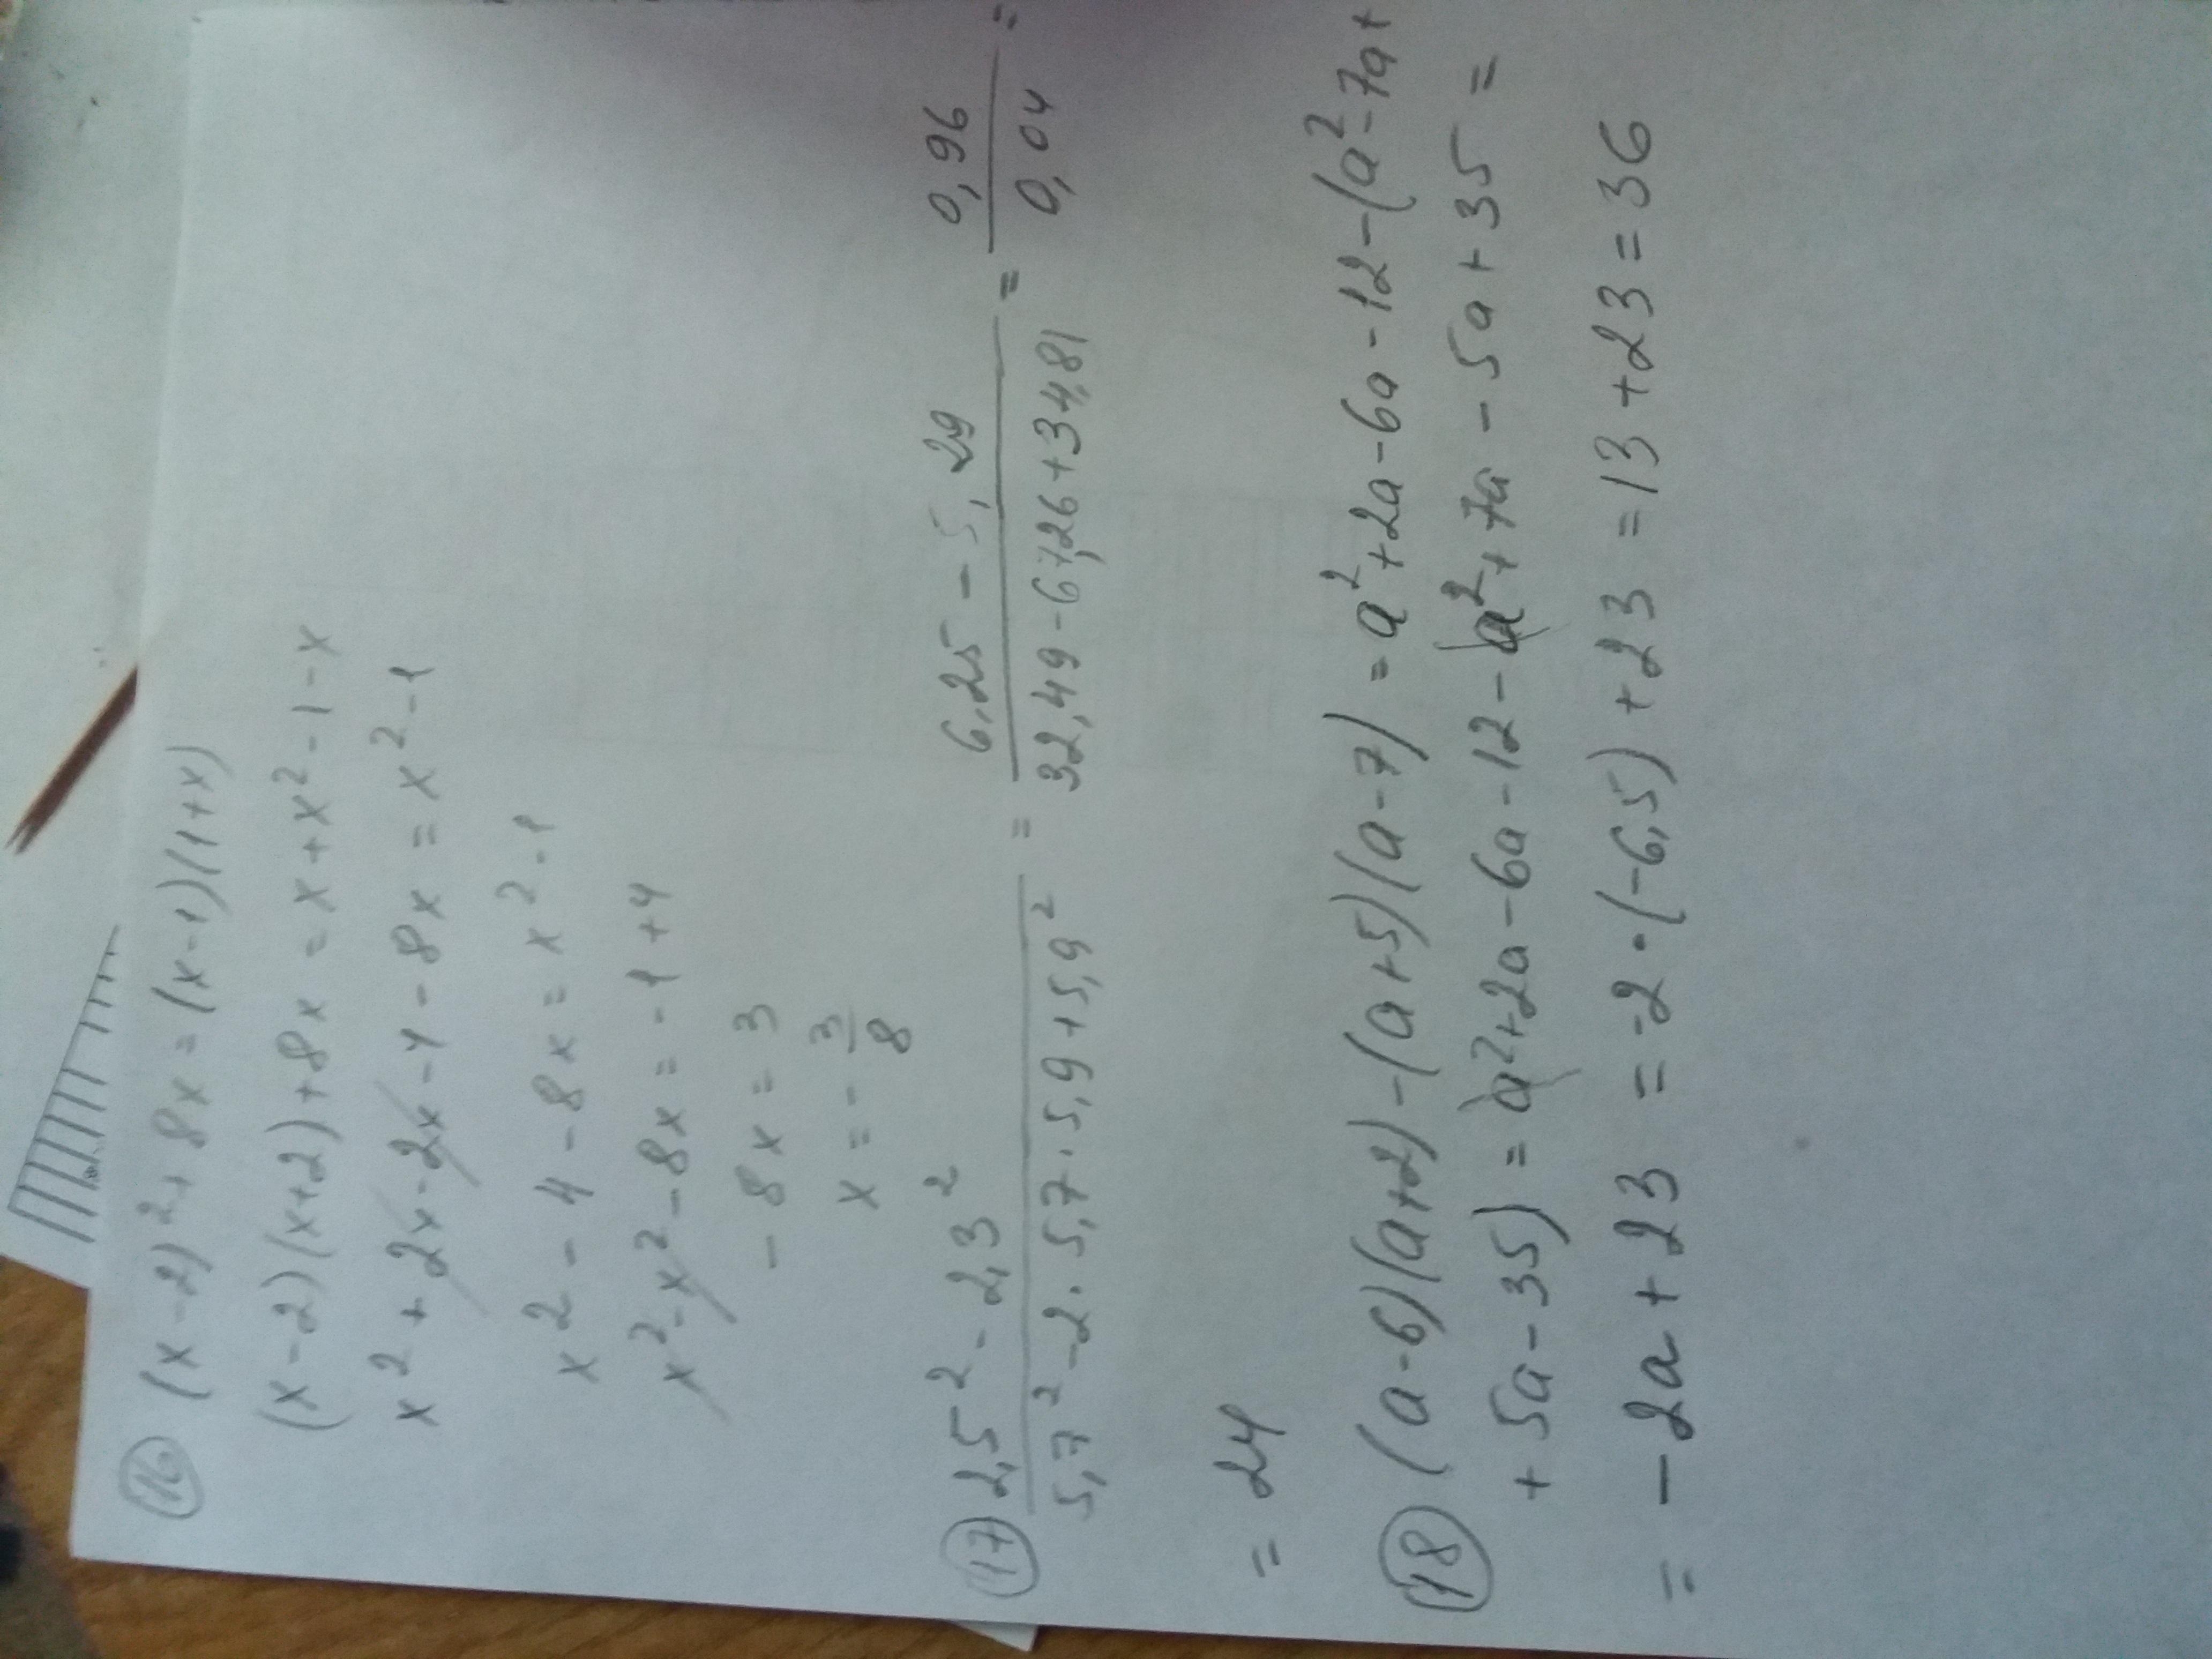 16 (x-2)²+8x=(x-1)(1+x)
(x-2)(x+2)+8x=x+x²-1-x
x²+2x-2x-4-8x=x²-1
x²-4-8x=x²-1
x²-x²-8x=-1+4
-8x=3
x=-3/8
17 (2,5²-2,3²)/(5,7²-2·5,7·5,9+5,9²) = (6,25-5,29)/(32,49-67,26+34,81) = 0,96/0,04 =
= 24
18 (a-6)(a+2)-(a+5)(a-7)=a²+2a-6a-12-(a²-7a+
+5a-35)=a²+2a-6a-12-a²+7a-5a+35=
=-2a+23=-2·(-6,5)+23=13+23=36